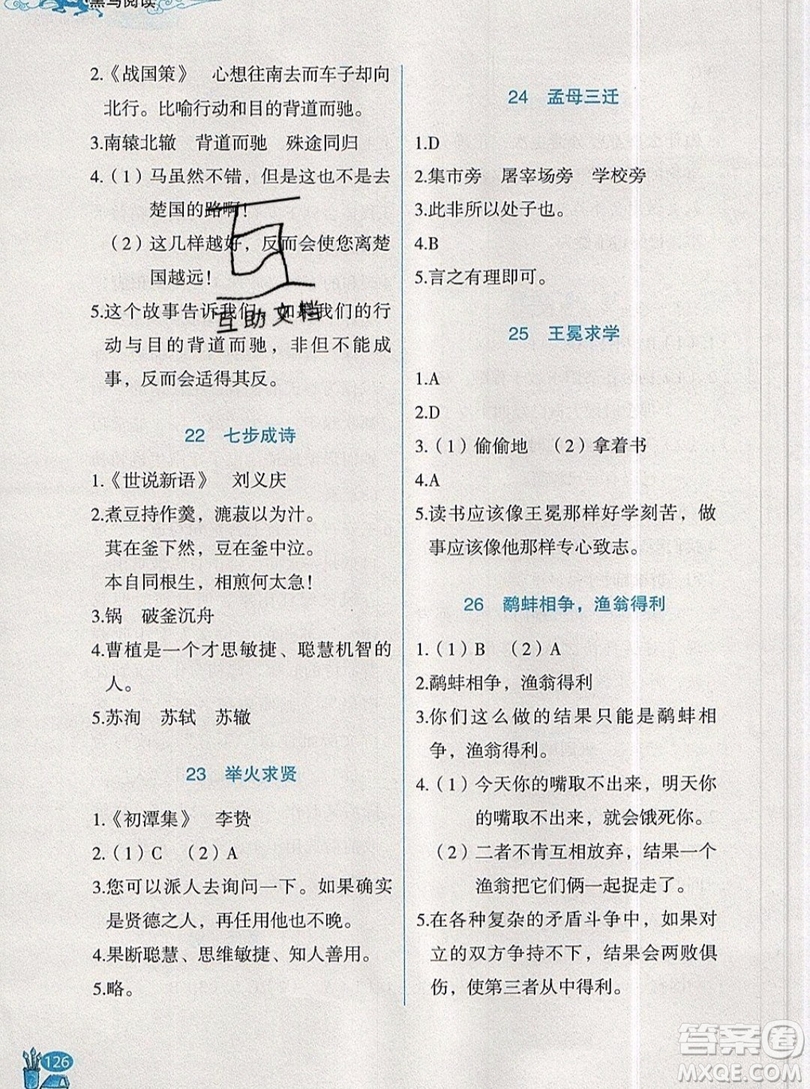 黑马阅读
2.《战国策》 心想往南去而车子却向
北行。比喻行动和目的背道而驰。
3.南辕北辙 背道而驰 殊途同归
4.（1）马虽然不错，但是这也不是去
楚国的路啊！
（2）这几样越好，反而会使您离楚
国越远！
5.这个故事告诉我们，如果我们的行
动与目的背道而驰，非但不能成
事，反而会适得其反。
22 七步成诗
1.《世说新语》 刘义庆
2.煮豆持作羹，漉菽以为汁。
萁在釜下然，豆在釜中泣。
本自同根生，相煎何太急！
3.锅 破釜沉舟
4.曹植是一个才思敏捷、聪慧机智的
人。
5.苏洵 苏轼 苏辙
23 举火求贤
1.《初潭集》 李贽
2.（1）C （2）A
3.您可以派人去询问一下。如果确实
是贤德之人，再任用他也不晚。
4.果断聪慧、思维敏捷、知人善用。
5.略。
24 孟母三迁
1.D
2.集市旁 屠宰场旁 学校旁
3.此非所以处子也。
4.B
5.言之有理即可。
25 王冕求学
1.A
2.D
3.（1）偷偷地 （2）拿着书
4.A
5.读书应该像王冕那样好学刻苦，做
事应该像他那样专心致志。
26 鹬蚌相争，渔翁得利
1.（1）B （2）A
2.鹬蚌相争，渔翁得利
3.你们这么做的结果只能是鹬蚌相
争，渔翁得利。
4.（1）今天你的嘴取不出来，明天你
的嘴取不出来，就会饿死你。
（2）二者不肯互相放弃，结果一个
渔翁把它们俩一起捉走了。
5.在各种复杂的矛盾斗争中，如果对
立的双方争持不下，结果会两败俱
伤，使第三者从中得利。
互助文档
126
答案圈
MXQE.COM